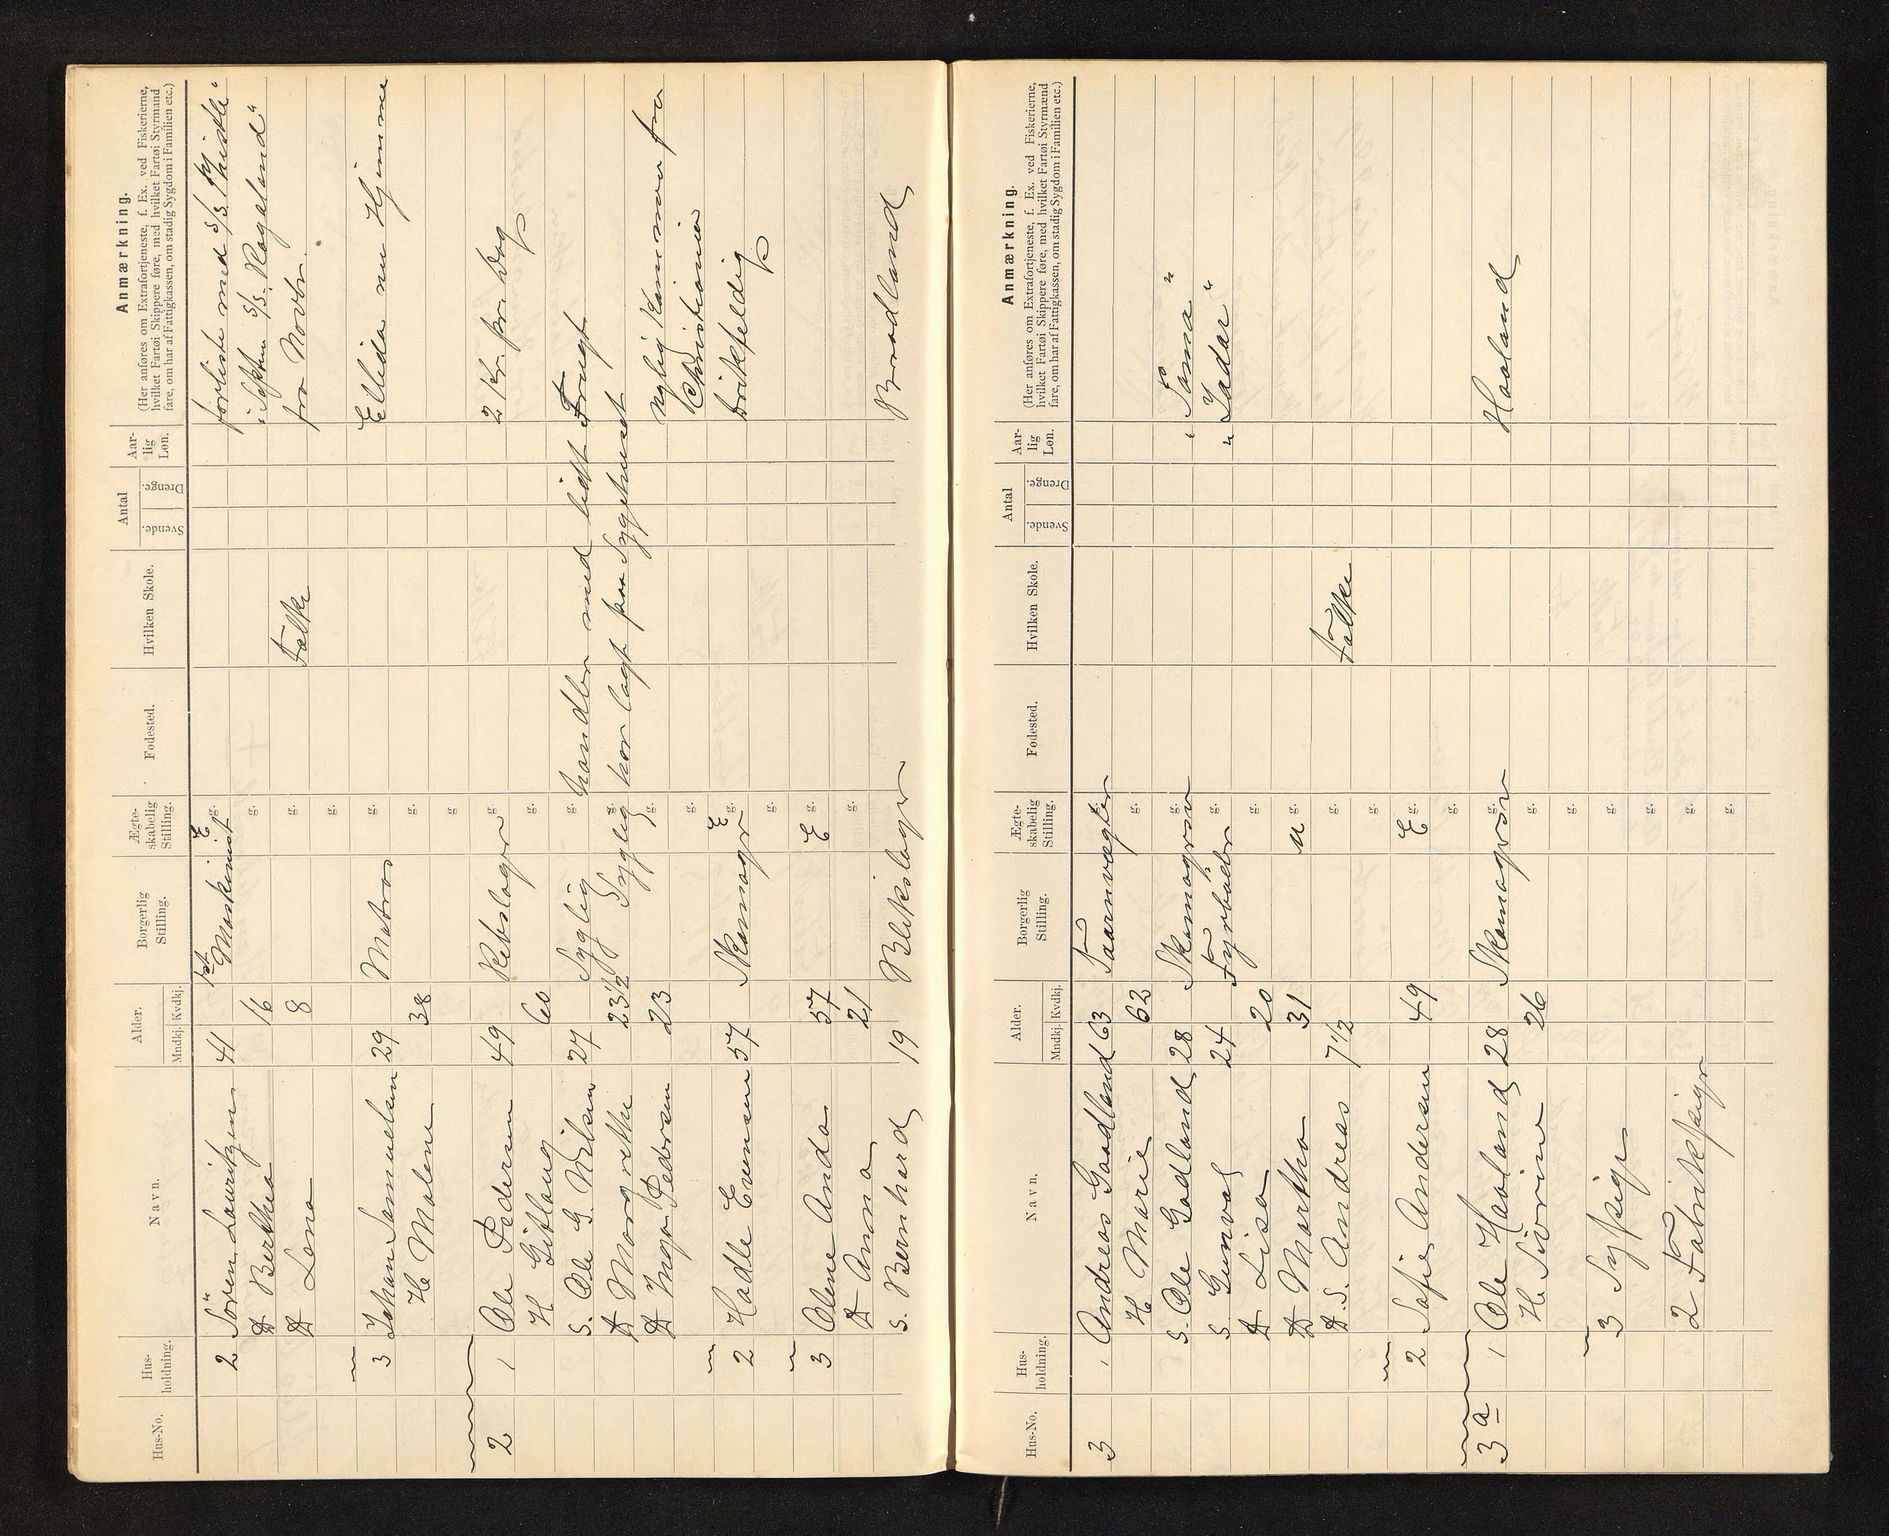 Hus-No. Hus-holdning. Navn. Alder. Mndkj. Kvdkj. Borgerlig Stilling. Ægte-skabelig Stilling. Fødested. Hvilken Skole. Antal Svende. Drenge. Aar-lig Løn. Anmærkning.
(Her anføres om Extrafortjeneste, f. Ex. ved Fiskerierne,
hvilket Fartøi Skippere føre, med hvilket Fartøi Styrmand
fare, om har af Fattigkassen, om stadig Sygdom i Familien etc.)
2 Sören Lauritzen 41 1st Maskinist E g. forliste med S/S. "Thistle"
D Berthea 16 g. i Septem S/S. "Rogaland"
D Lena 8 g. Folke fra Novbr.
g.
3 Johan Samuelsen 29 Matros g. Ellida nu Hjemme
H Malene 38 g.
g.
2 1 Ole Pedersen 49 Rebslager g. 2 Kr. pr. Dag
H Gitlaug 60 g.
S. Ole G. Nilsen 27 Syglig g. handler med lidt Frugt
D Margrethe 23 1/2 Syglig g. har lagt paa Sygehuset
D Inga Pedersen 23 g. nylig Kommen fra
g. Christiania
2 Hadle Evensen 57 Skomager E g. Drikfeldig
g.
3 Olene Anda 57 E g.
D Anna 21 g.
S. Bernhard 19 Blikslager Braadland
Hus-No. Hus-holdning. Navn. Alder. Mndkj. Kvdkj. Borgerlig Stilling. Ægte-skabelig Stilling. Fødested. Hvilken Skole. Antal Svende. Drenge. Aar-lig Løn. Anmærkning.
(Her anføres om Extrafortjeneste, f. Ex. ved Fiskerierne,
hvilket Fartøi Skippere føre, med hvilket Fartøi Styrmænd
fare, om har af Fattigkassen, om stadig Sygdom i Familien etc.)
3 1 Andreas Gaadland 63 Taarnvægter g.
H Marie 62 g.
S. Ole Gadland 28 Skomagersv g. "Soma"
S. Gunval 24 Fyrböder g. "Jadar"
D Lisa 20 g.
D Martha 31 u g.
D.S. Andreas 7 1/2 g. Folke
g.
2 Sofie Andersen 49 E g.
g.
3 a 1 Ole Haaland 28 Skomagersv g. Haaland
H Sivrine 26 g.
g.
3 Sypiger g.
g.
2 Fabrikpiger g.
g.